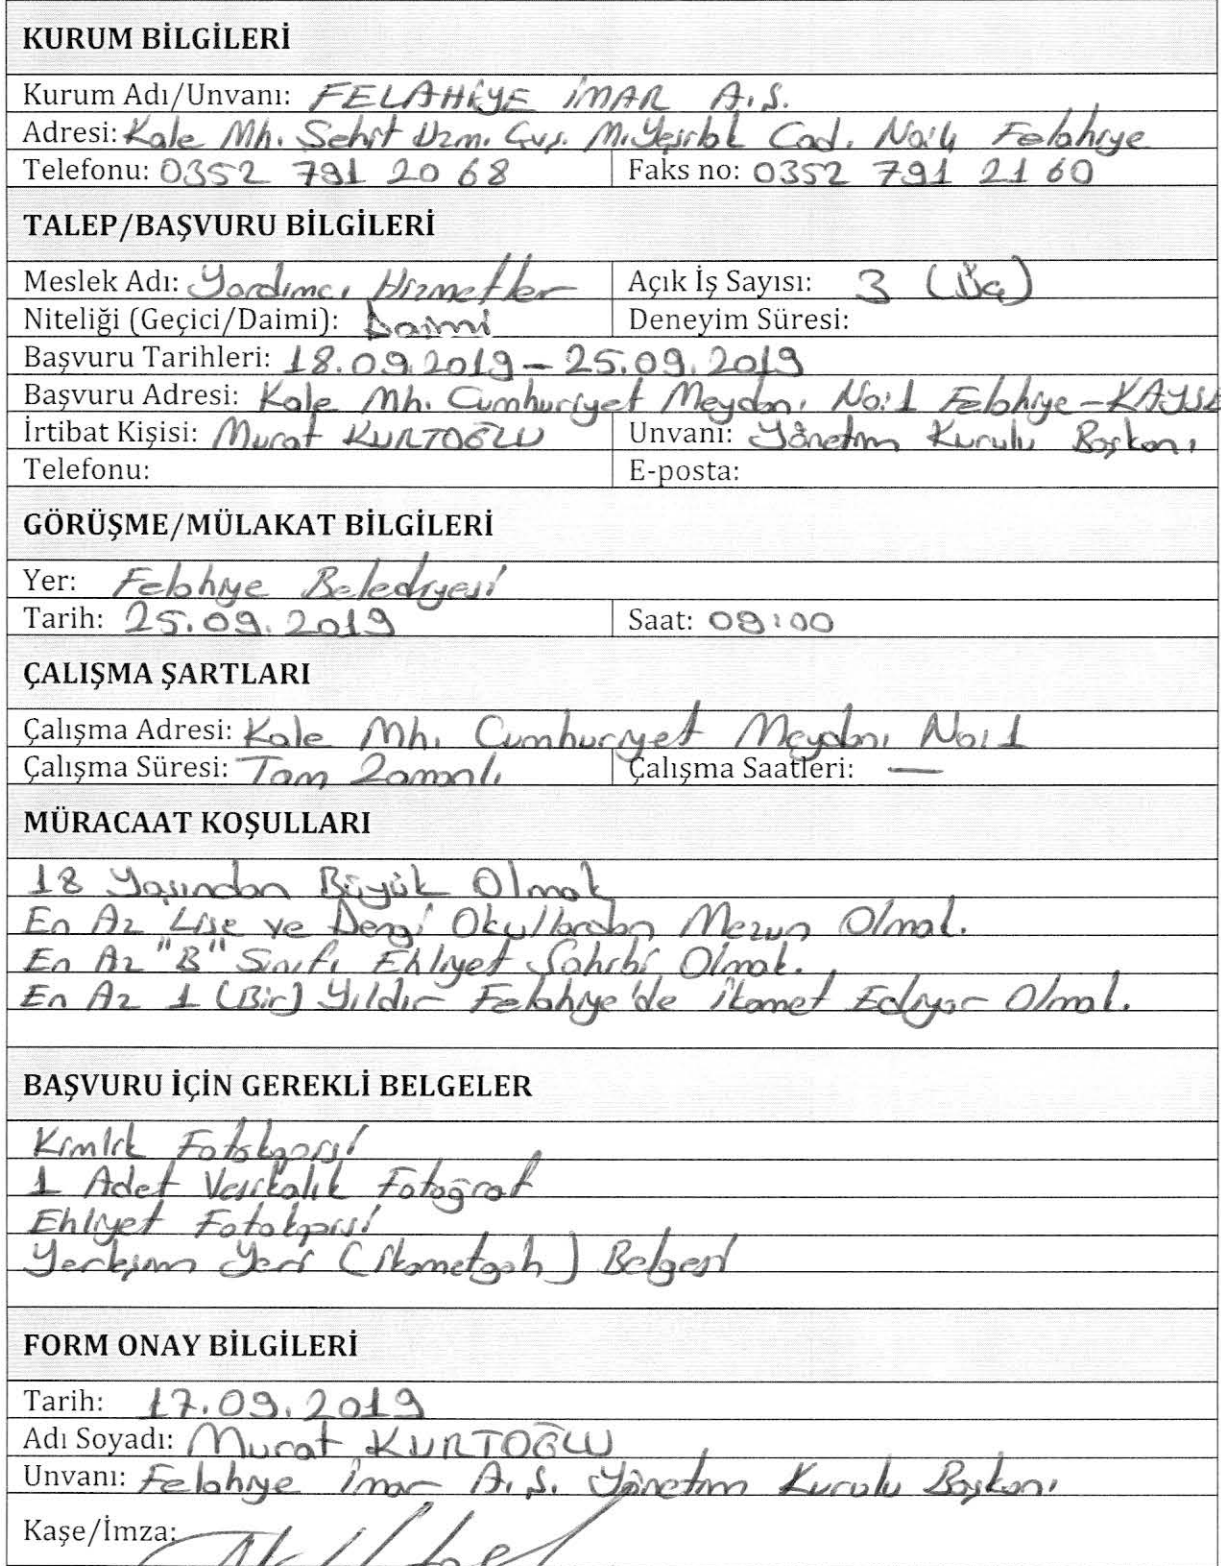 KURUM BİLGİLERİ
Kurum Adı/Unvanı: FELAHİYE İMAR A.Ş.
Adresi: Kale Mh. Şehit Uzm. Çvş. M. Yeşirbl Cad. No:4 Felahiye
Telefonu: 0352 791 20 68 Faks no: 0352 791 21 60
TALEP/BAŞVURU BİLGİLERİ
Meslek Adı: Yardımcı Hizmetler Açık İş Sayısı: 3 (Üç)
Niteliği (Geçici/Daimi): Daimi Deneyim Süresi:
Başvuru Tarihleri: 18.09.2019 - 25.09.2019
Başvuru Adresi: Kale Mh. Cumhuriyet Meydanı No:1 Felahiye-KAYSE
İrtibat Kişisi: Murat KURTOĞLU Unvanı: Yönetim Kurulu Başkanı
Telefonu: E-posta:
GÖRÜŞME/MÜLAKAT BİLGİLERİ
Yer: Felahiye Belediyesi
Tarih: 25.09.2019 Saat: 09:00
ÇALIŞMA ŞARTLARI
Çalışma Adresi: Kale Mh. Cumhuriyet Meydanı No:1
Çalışma Süresi: Tam Zamanlı Çalışma Saatleri: —
MÜRACAAT KOŞULLARI
18 Yaşından Büyük Olmak
En Az Lise ve Dengi Okullardan Mezun Olmak.
En Az "B" Sınıfı Ehliyet Sahibi Olmak.
En Az 1 (Bir) Yıldır Felahiye'de İkamet Ediyor Olmak.
BAŞVURU İÇİN GEREKLİ BELGELER
Kimlik Fotokopisi
1 Adet Vesikalık Fotoğraf
Ehliyet Fotokopisi
Yerleşim Yeri (İkametgah) Belgesi
FORM ONAY BİLGİLERİ
Tarih: 17.09.2019
Adı Soyadı: Murat KURTOĞLU
Unvanı: Felahiye İmar A.Ş. Yönetim Kurulu Başkanı
Kaşe/İmza: